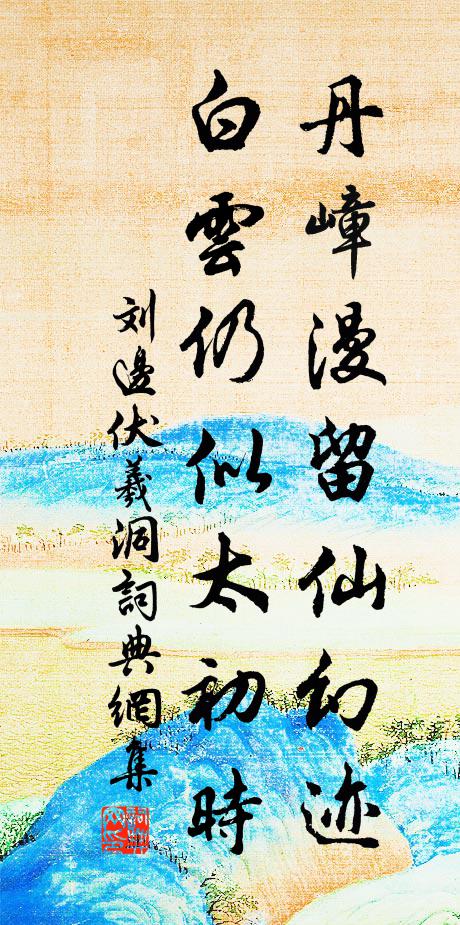 丹嶂漫留仙幻迹
白雲仍似太初時
刘邊伏羲洞詞典網集